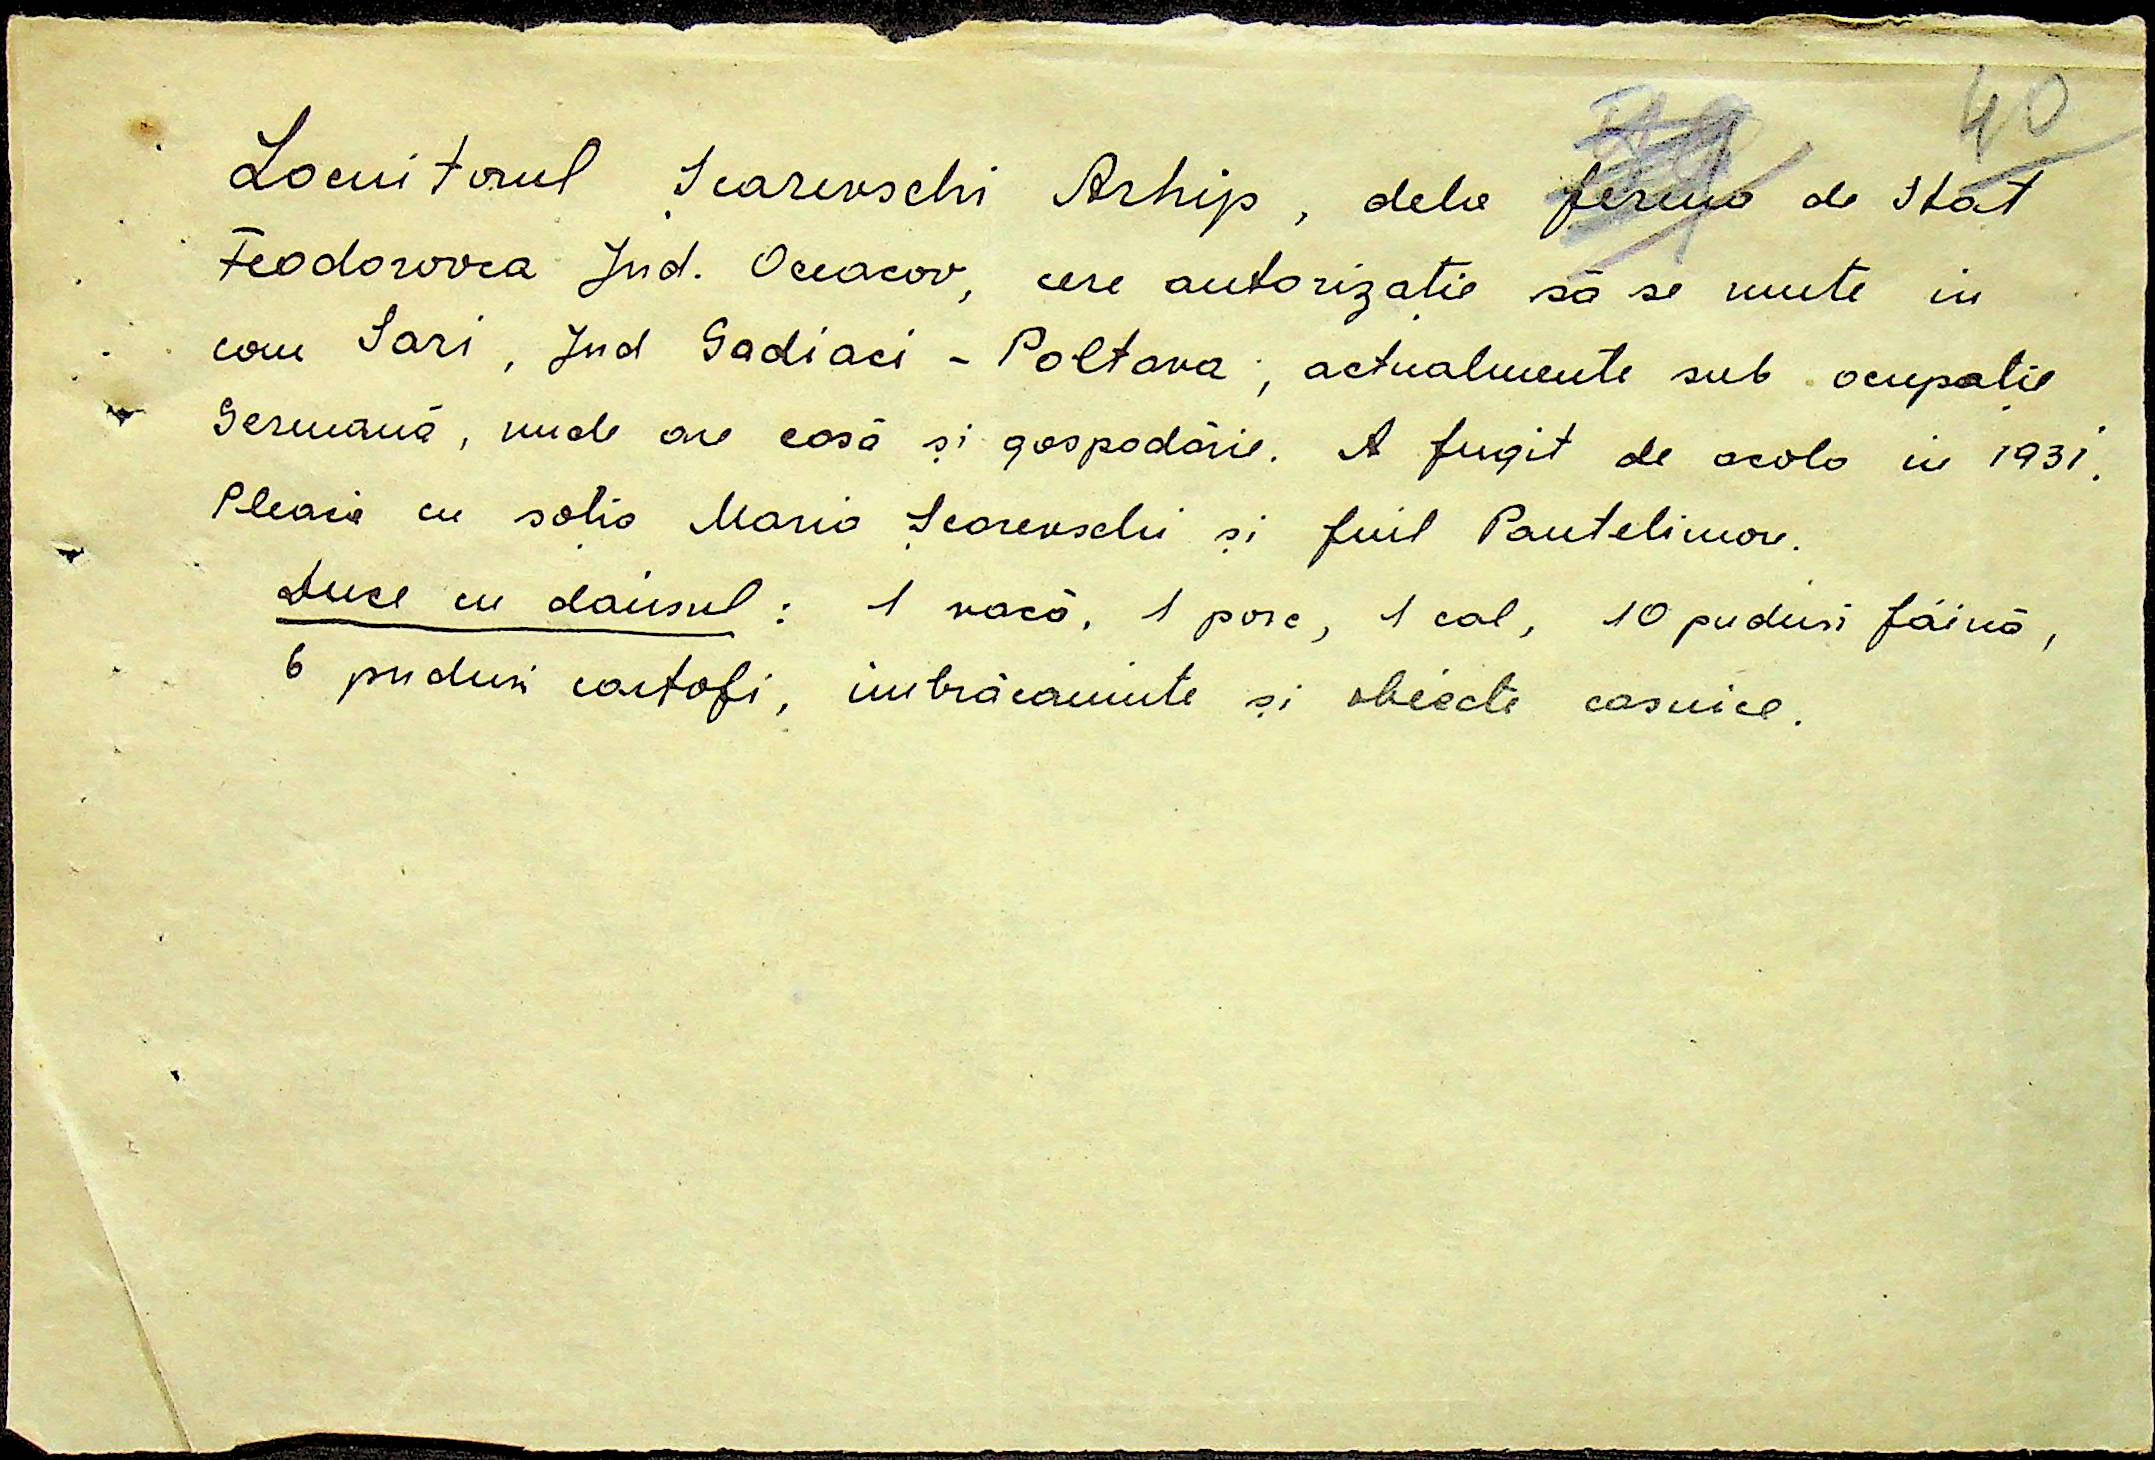 40
Locuitorul Șcarevschi Arhip, dela ferma de Stat
Feodorovca Jud. Oceacov, cere autorizație să se mute in
com Sari, Jud Gadiaci - Poltava, actualmente sub ocupație
Germană, unde are casă și gospodărie. A fugit de acolo in 1931.
Pleacă cu soția Maria Șcarevschi și fiul Pantelimon.
Duce cu dânsul: 1 vacă, 1 porc, 1 cal, 10 puduri făină,
6 puduri cartofi, imbrăcaminte și obiecte casnice.